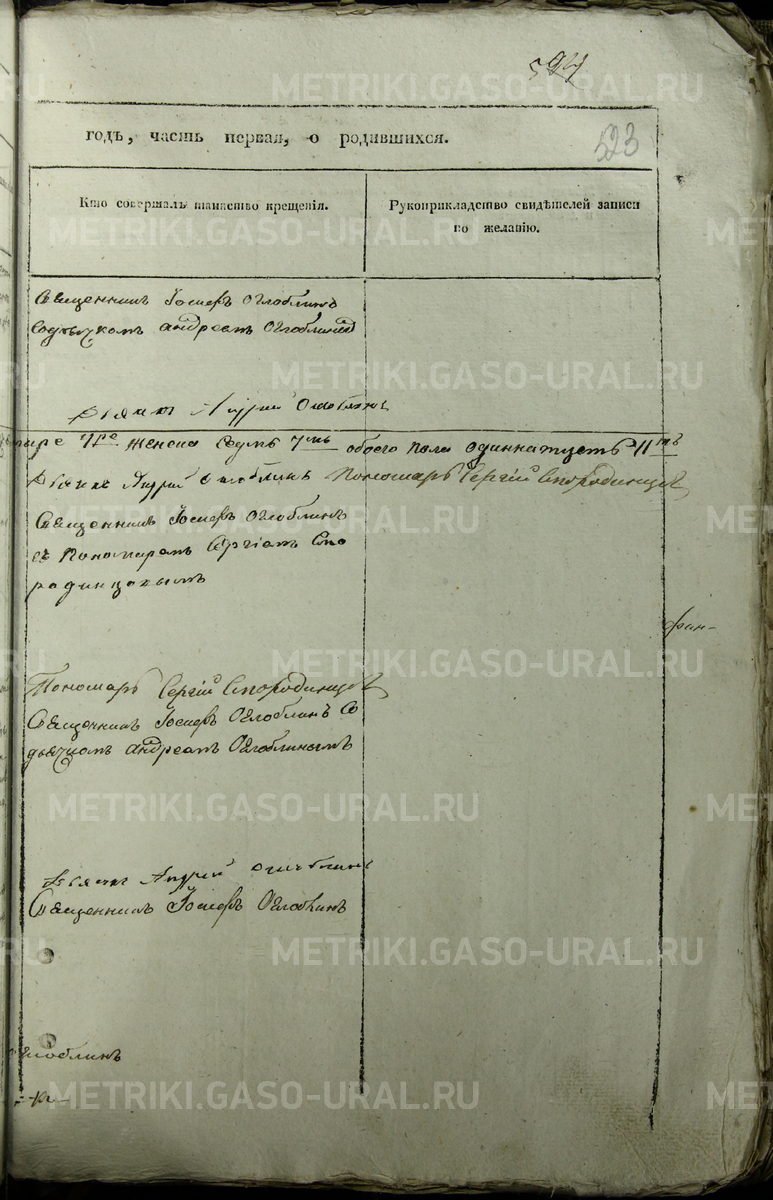 594
523
годѣ, часть первая, о родившихся.
Кто совершалъ таинство крещенія.
Рукоприкладство свидѣтелей записи по желанію.
Священникъ Іосифъ Оглоблинъ
содьячкомъ андреемъ Оглоблинымъ
Дьячекъ Андрей Оглоблинъ
женска седмь 7мь обоего пола одиннатцеть 11ть
Дьячекъ Андрей Оглоблинъ Пономарь Сергій Смородинцовъ
Священникъ Іосифъ Оглоблинъ
съ Пономаремъ Сергіемъ Смо
родинцовымъ
Пономарь Сергій Смородинцовъ
Священникъ Іосифъ Оглоблинъ Со
дьячкомъ андреемъ Оглоблинымъ
Дьячекъ Андрей Оглоблинъ
Священникъ Іосифъ Оглоблинъ
Оглоблинъ
METRIKI.GASO-URAL.RU